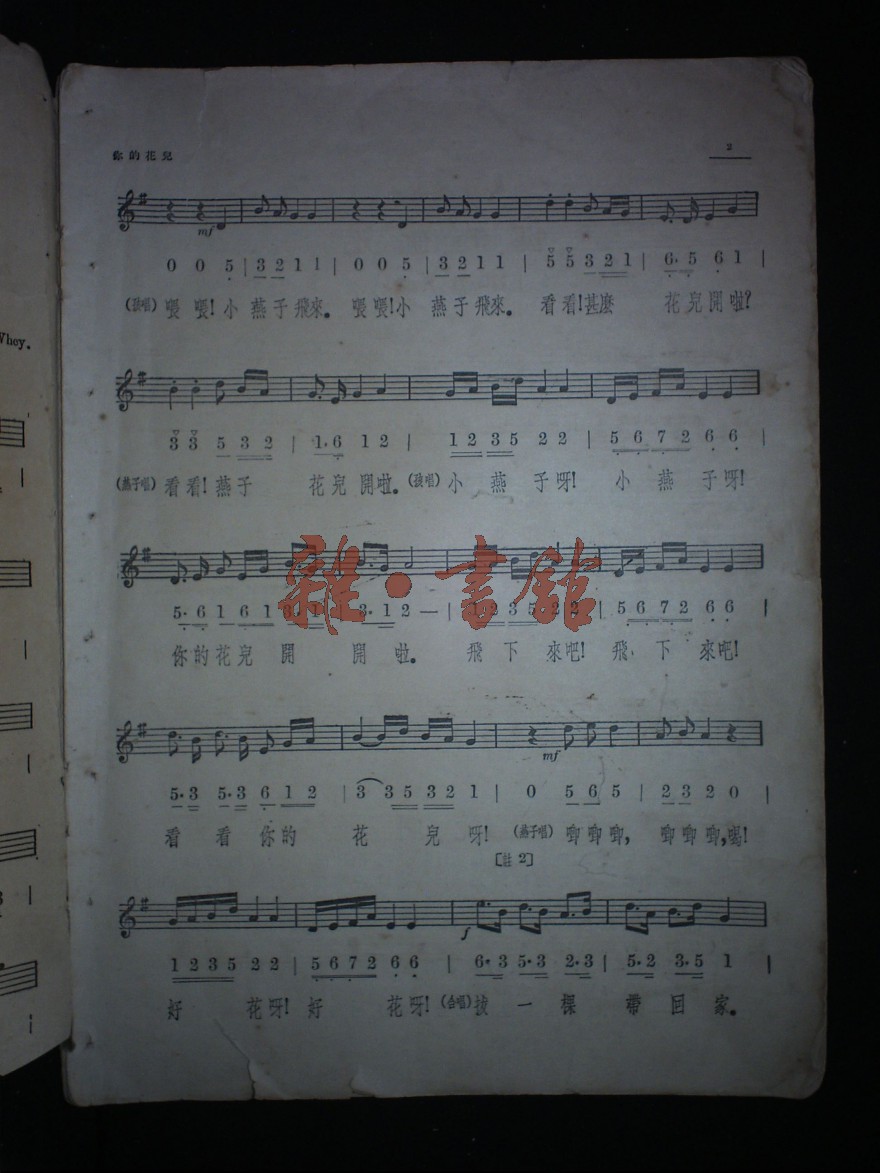 你的花兒
2
Whey.
mf
0 0 5 | 3 2 1 1 | 0 0 5 | 3 2 1 1 | 5 5 3 2 1 | 6·5 6 1 |
(孩唱) 喂喂!小燕子飛來。喂喂!小燕子飛來。看看!甚麼花兒開啦?
3 3 5 3 2 | 1·6 1 2 | 1 2 3 5 2 2 | 5 6 7 2 6 6 |
(燕子唱) 看看!燕子花兒開啦。(孩唱) 小燕子呀!小燕子呀!
雜·書館
5·6 1 6 1 6 1 | 3·1 2 — | 2 3 5 2 2 | 5 6 7 2 6 6 |
你的花兒開開啦。飛下來吧!飛下來吧!
mf
5·3 5·3 6 1 2 | 3 3 5 3 2 1 | 0 5 6 5 | 2 3 2 0 |
看看你的花兒呀!(燕子唱) 唧唧唧,唧唧唧,嗎!
[註2]
f
1 2 3 5 2 2 | 5 6 7 2 6 6 | 6·3 5·3 2·3 | 5·2 3·5 1 |
好花呀!好花呀!(合唱) 拔一棵帶回家。